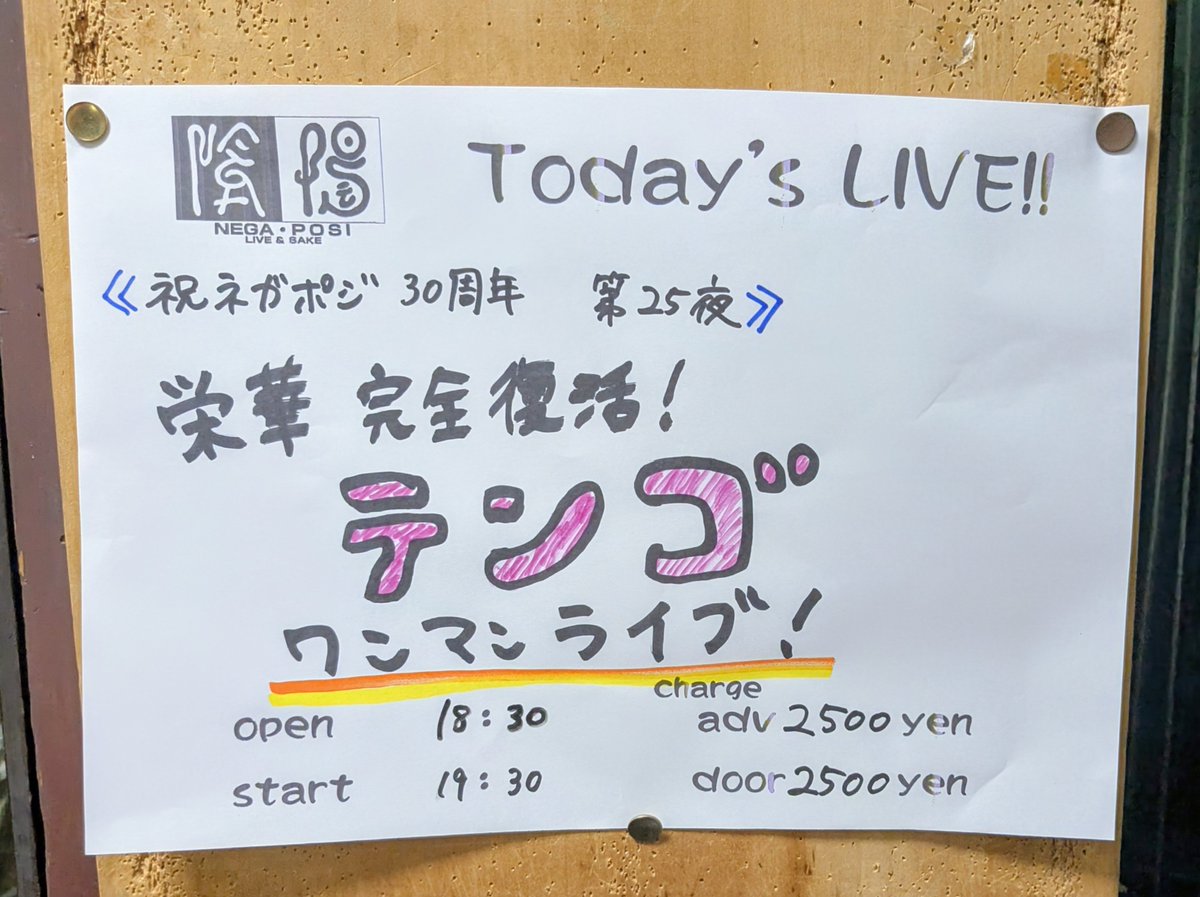 陰陽
NEGA・POSI
LIVE & SAKE
Today's LIVE!!
《祝ネガポジ 30周年 第25夜》
栄華 完全復活!
テンゴ
ワンマンライブ!
charge
open 18:30 adv 2500 yen
start 19:30 door 2500 yen